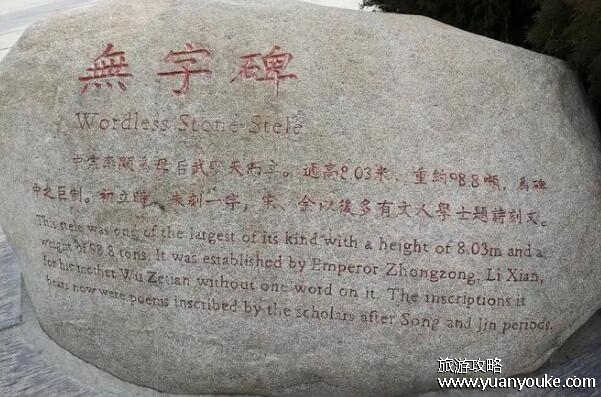 無字碑
Wordless Stone Stele
中宗李顯為母后武則天而立。通高8.03米、重約98.8噸，為碑
中之巨制。初立時，未刻一字，宋、金以後多有文人學士題詩刻文。
This stele was one of the largest of its kind with a height of 8.03m and a
weight of 98.8 tons. It was established by Emperor Zhongzong, Li Xian,
for his mother Wu Zetian without one word on it. The inscriptions it
bears now were poems inscribed by the scholars after Song and Jin periods.
旅游攻略
www.yuanyouke.com